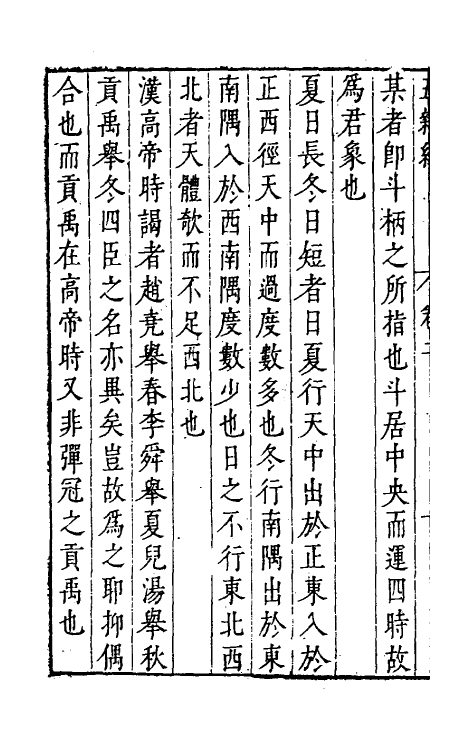 某者即斗柄之所指也斗居中央而運四時故
爲君象也
夏日長冬日短者日夏行天中出於正東入於
正西徑天中而過度數多也冬行南隅出於東
南隅入於西南隅度數少也日之不行東北西
北者天體欹而不足西北也
漢高帝時謁者趙堯舉春李舜舉夏兒湯舉秋
貢禹舉冬四臣之名亦異矣豈故爲之耶抑偶
合也而貢禹在高帝時又非彈冠之貢禹也